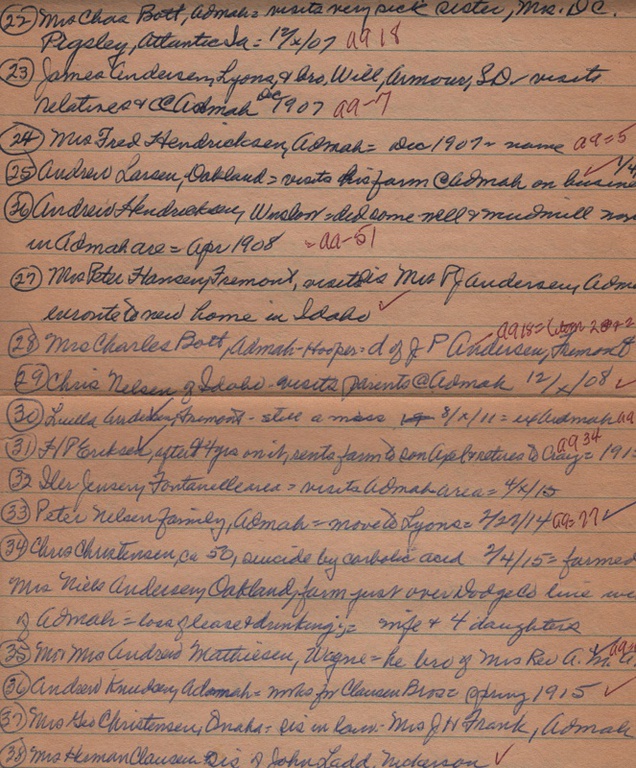 (22) Mrs Chas Bott, Admah = visits very sick sister, Mrs. D.C.
Pigsley, Atlantic Ia = 12/x/07 aq 18
(23) James Andersen, Lyons, & bro, Will, Armour, S.D. - visits
relatives @ Admah Dec 1907 aa-7
(24) Mrs Fred Hendricksen, Admah = Dec 1907 - name aq=5
(25) Andrew Larsen, Oakland = visits his farm @ Admah on
(26) Andrew Hendricksen, Winslow = did some well & windmill
in Admah are = Apr 1908 = aa-51
(27) Mrs Peter Hansen, Fremont, visits sis Mrs PJ Andersen,
enroute to new home in Idaho
aq18=
(28) Mrs Charles Bott, Admah-Hooper = d of J P Andersen, Fremont
(29) Chris Nelsen of Idaho - visits parents @ Admah 12/x/08
(30) Luella Andersen, Fremont - still a miss 8/x/11 = ex Admah aq
(31) H P Eriksen, after 24 yrs on it, rents farm to son Axel & retires to Craig = 191 aq 34
(32 Iler Jensen, Fontanelle area = visits Admah area = 4/x/13
(33) Peter Nelsen family, Admah = move to Lyons = 2/27/14 aq=77
(34) Chris Christensen, ca 50, suicide by carbolic acid 2/4/15 = farmed
Mrs Niels Andersen, Oakland, farm just over Dodge Co line
of Admah = loss of lease & drinking; = wife & 4 daughters
(35) Mr Mrs Andrew Mathiesen, Wayne = he bro of Mrs Rev A.
(36) Andrew Knudsen, Adamah = works for Clausen Bros = spring 1915
(37) Mrs Geo Christensen, Omaha = sis in law - Mrs J H Frank, Admah
(38) Mrs Herman Clausen sis of John Ladd, Nickerson